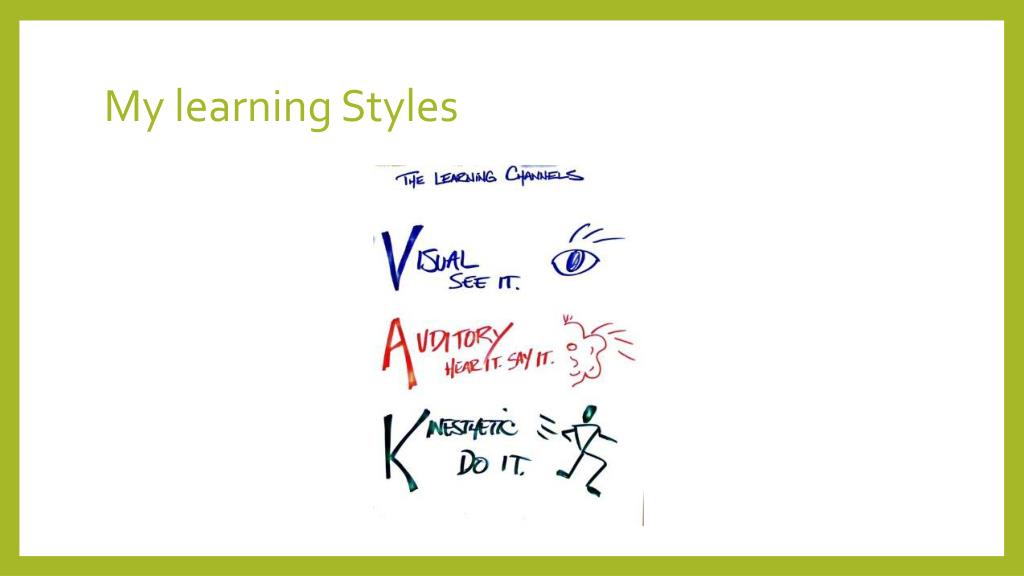 My learning Styles
THE LEARNING CHANNELS
VISUAL
SEE IT.
AUDITORY
HEAR IT. SAY IT.
KINESTHETIC
DO IT.